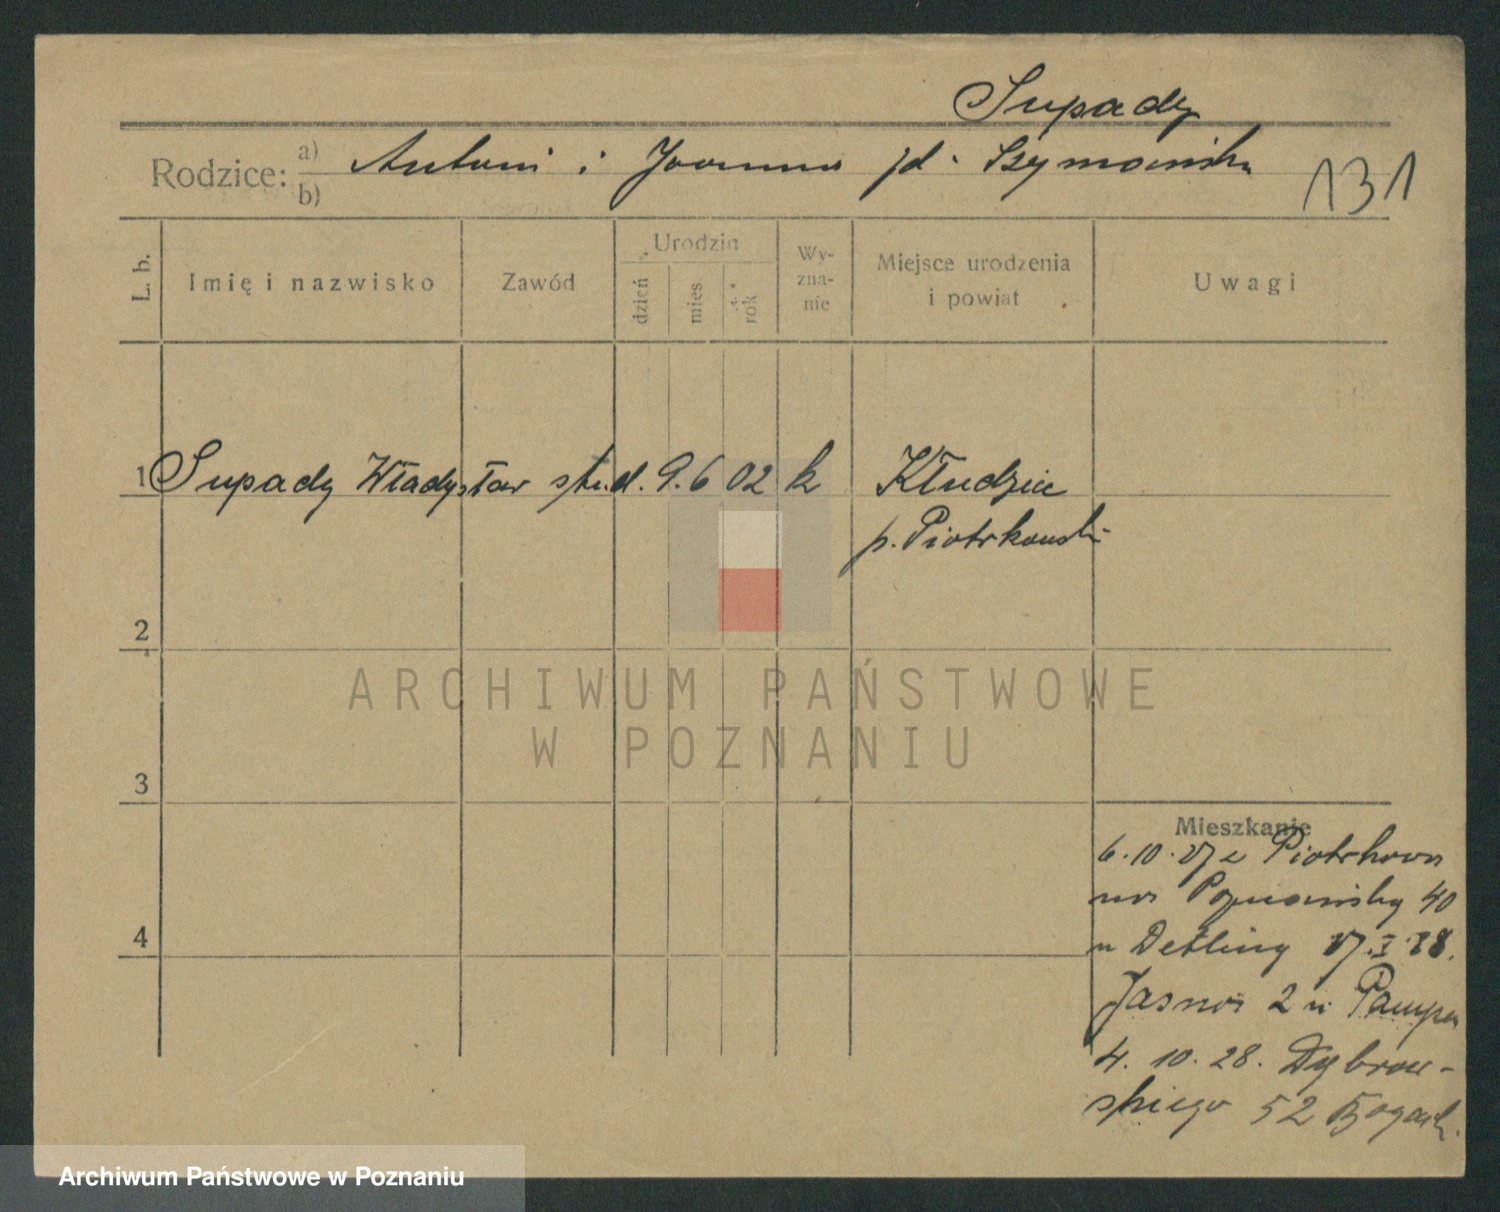 Supady
Rodzice: a) b) Antoni i Joanna zd. Szymańska
131
L. b. Imię i nazwisko Zawód Urodzin dzień mies. rok Wy-zna-nie Miejsce urodzenia i powiat Uwagi
1 Supady Władysław stud. 9. 6 02 k Kłudzice
p. Piotrkowski
2
ARCHIWUM PAŃSTWOWE
W POZNANIU
3
Mieszkanie
6.10.27 z Piotrkowa
na Poznański 40
u Detliny 17.I.28.
Jasna 2 u
4
4. 10. 28. Dąbrow-
skiego 52
Archiwum Państwowe w Poznaniu